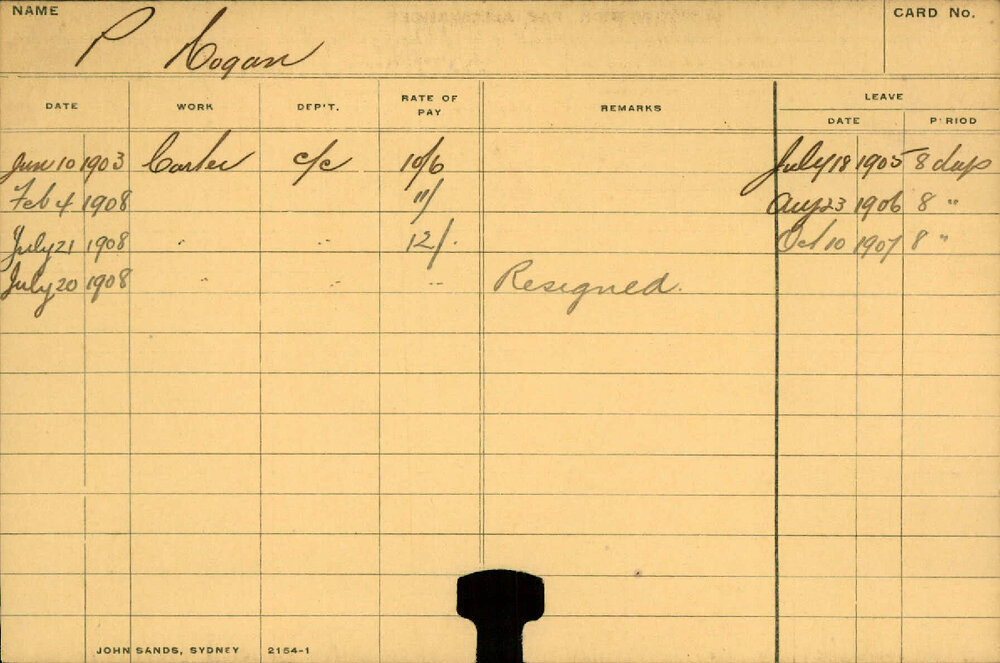 NAME
P Hogan
CARD No.
DATE WORK DEP'T. RATE OF PAY REMARKS LEAVE
DATE PERIOD
Jun 10 1903 Carter c/c 10/6 July 18 1905 8 days
Feb 4 1908 11/ Aug 23 1906 8 "
July 21 1908 " " 12/- Oct 10 1907 8 "
July 20 1908 " " " Resigned.
JOHN SANDS, SYDNEY 2154-1